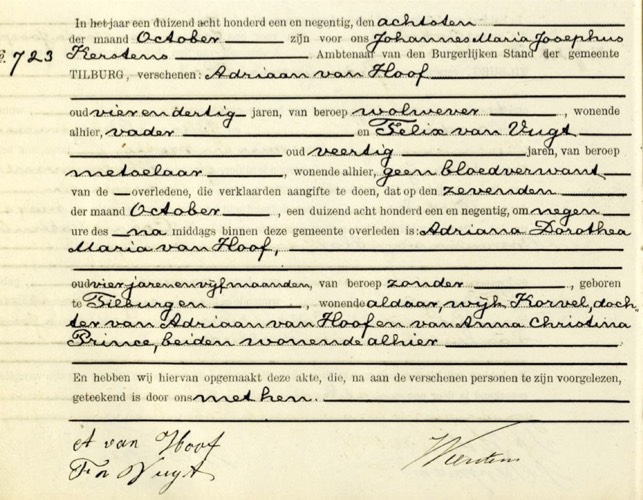 In het jaar een duizend acht honderd een en negentig, den achtsten
der maand October zijn voor ons Johannes Maria Josephus
723 Kerstens Ambtenaar van den Burgerlijken Stand der gemeente
TILBURG, verschenen: Adriaan van Hoof
oud vier en dertig jaren, van beroep wolwever, wonende
alhier, vader en Felix van Vugt
oud veertig jaren, van beroep
metselaar, wonende alhier, geen bloedverwant
van de overledene, die verklaarden aangifte te doen, dat op den zevenden
der maand October, een duizend acht honderd een en negentig, om negen
ure des na middags binnen deze gemeente overleden is: Adriana Dorothea
Maria van Hoof,
oud vier jaren en vijf maanden, van beroep zonder, geboren
te Tilburg en, wonende aldaar, wijk Korvel, doch-
ter van Adriaan van Hoof en van Anna Christina
Prince, beiden wonende alhier
En hebben wij hiervan opgemaakt deze akte, die, na aan de verschenen personen te zijn voorgelezen,
geteekend is door ons met hen.
A van Hoof
F v Vugt
Kerstens